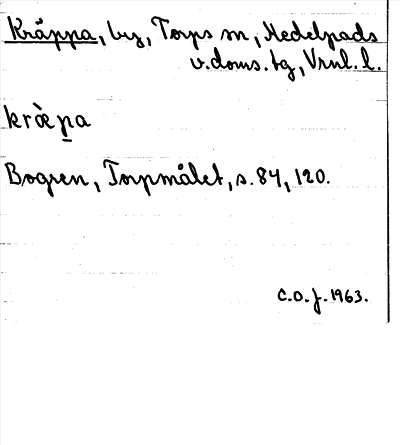 Kräppa, by, Torps sn, Medelpads
v. doms. tg, Vrnl. l.
kræ̀p̠a
Bogren, Torpmålet, s. 84, 120.
C.O.J. 1963.